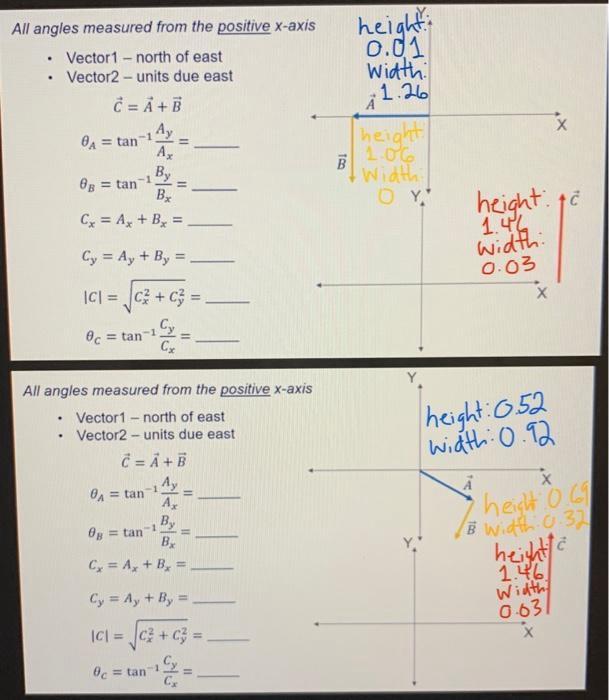 All angles measured from the positive x-axis
• Vector1 – north of east
• Vector2 – units due east
C⃗ = A⃗ + B⃗
θ_A = tan⁻¹ A_y/A_x = ____
θ_B = tan⁻¹ B_y/B_x = ____
C_x = A_x + B_x = ____
C_y = A_y + B_y = ____
|C| = √(C_x² + C_y²) = ____
θ_C = tan⁻¹ C_y/C_x = ____
Y
height:
0.01
Width:
1.26
A⃗
X
height:
1.06
Width:
0
B⃗
Y
height:
1.46
width:
0.03
C⃗
X
All angles measured from the positive x-axis
• Vector1 – north of east
• Vector2 – units due east
C⃗ = A⃗ + B⃗
θ_A = tan⁻¹ A_y/A_x = ____
θ_B = tan⁻¹ B_y/B_x = ____
C_x = A_x + B_x = ____
C_y = A_y + B_y = ____
|C| = √(C_x² + C_y²) = ____
θ_C = tan⁻¹ C_y/C_x = ____
Y
height: 0.52
width: 0.92
A⃗
X
height 0.69
B⃗ width: 0.32
Y
height
1.46
Width:
0.03
C⃗
X